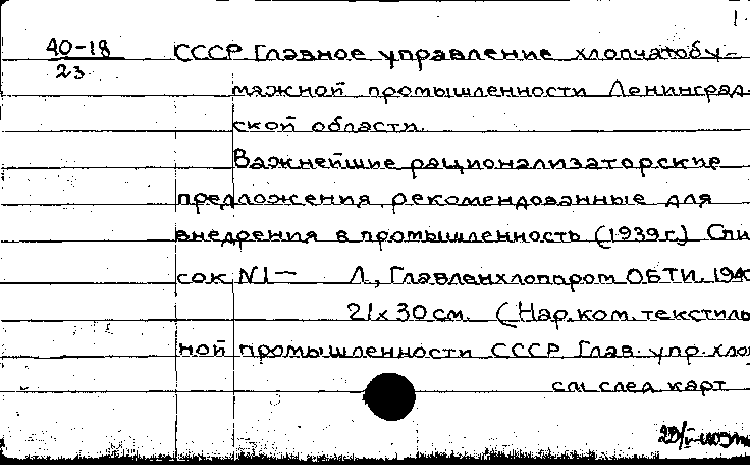 1.
40-18 СССР. Главное управление хлопчатобу-
23
мажной промышленности Ленинград-
ской области.
Важнейшие рационализаторские
предложения, рекомендованные для
внедрения в промышленность (1939 г.) Спи
сок N1— Л., Главленхлопаром ОБТИ. 1940
21х30 см. (Нар. ком. текстиль
ной промышленности СССР. Глав. упр. хло
см. след. карт